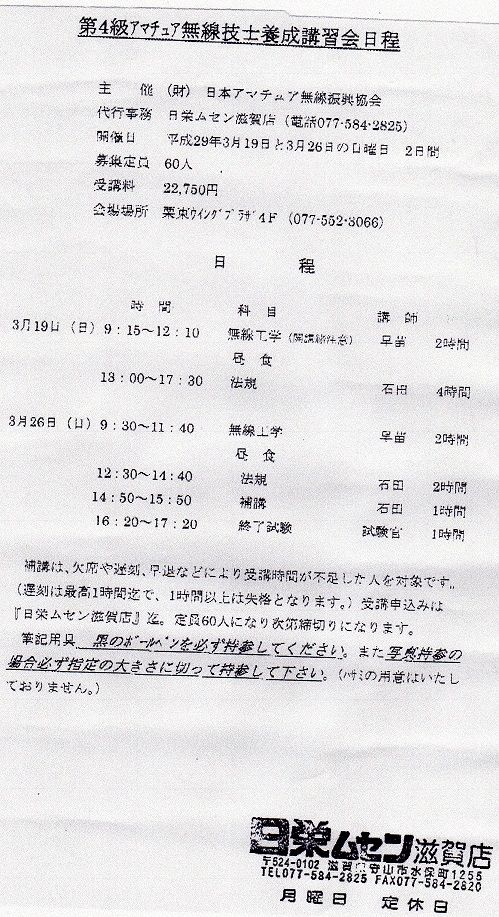 第4級アマチュア無線技士養成講習会日程
主　　催　（財）　日本アマチュア無線振興協会
代行事務　日栄ムセン滋賀店　（電話077-584-2825）
開催日　　平成29年3月19日と3月26日の日曜日　2日間
募集定員　60人
受講料　　22,750円
会場場所　栗東ウイングプラザ4F　（077-552-3066）
日　　　程
時　間　　　科　目　　　講　師
3月19日（日）9：15～12：10　無線工学（開講式含む）　早苗　2時間
昼　食
13：00～17：30　法規　石田　4時間
3月26日（日）9：30～11：40　無線工学　早苗　2時間
昼　食
12：30～14：40　法規　石田　2時間
14：50～15：50　補講　石田　1時間
16：20～17：20　終了試験　試験官　1時間
補講は、欠席や遅刻、早退などにより受講時間が不足した人を対象です。
（遅刻は最高1時間迄で、1時間以上は失格となります。）受講申込みは
『日栄ムセン滋賀店』迄。定員60人になり次第締切りになります。
筆記用具　黒のボールペンを必ず持参してください。また写真持参の
場合必ず指定の大きさに切って持参して下さい。（ハサミの用意はいたし
ておりません。）
日栄ムセン滋賀店
〒524-0102　滋賀県守山市水保町1255
TEL077-584-2825　FAX077-584-2820
月曜日　定休日